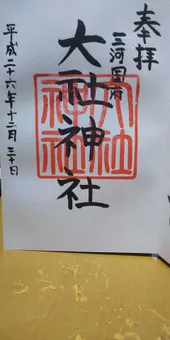 奉拝
三河国府
大社神社
大社神社
平成二十六年十二月三十日